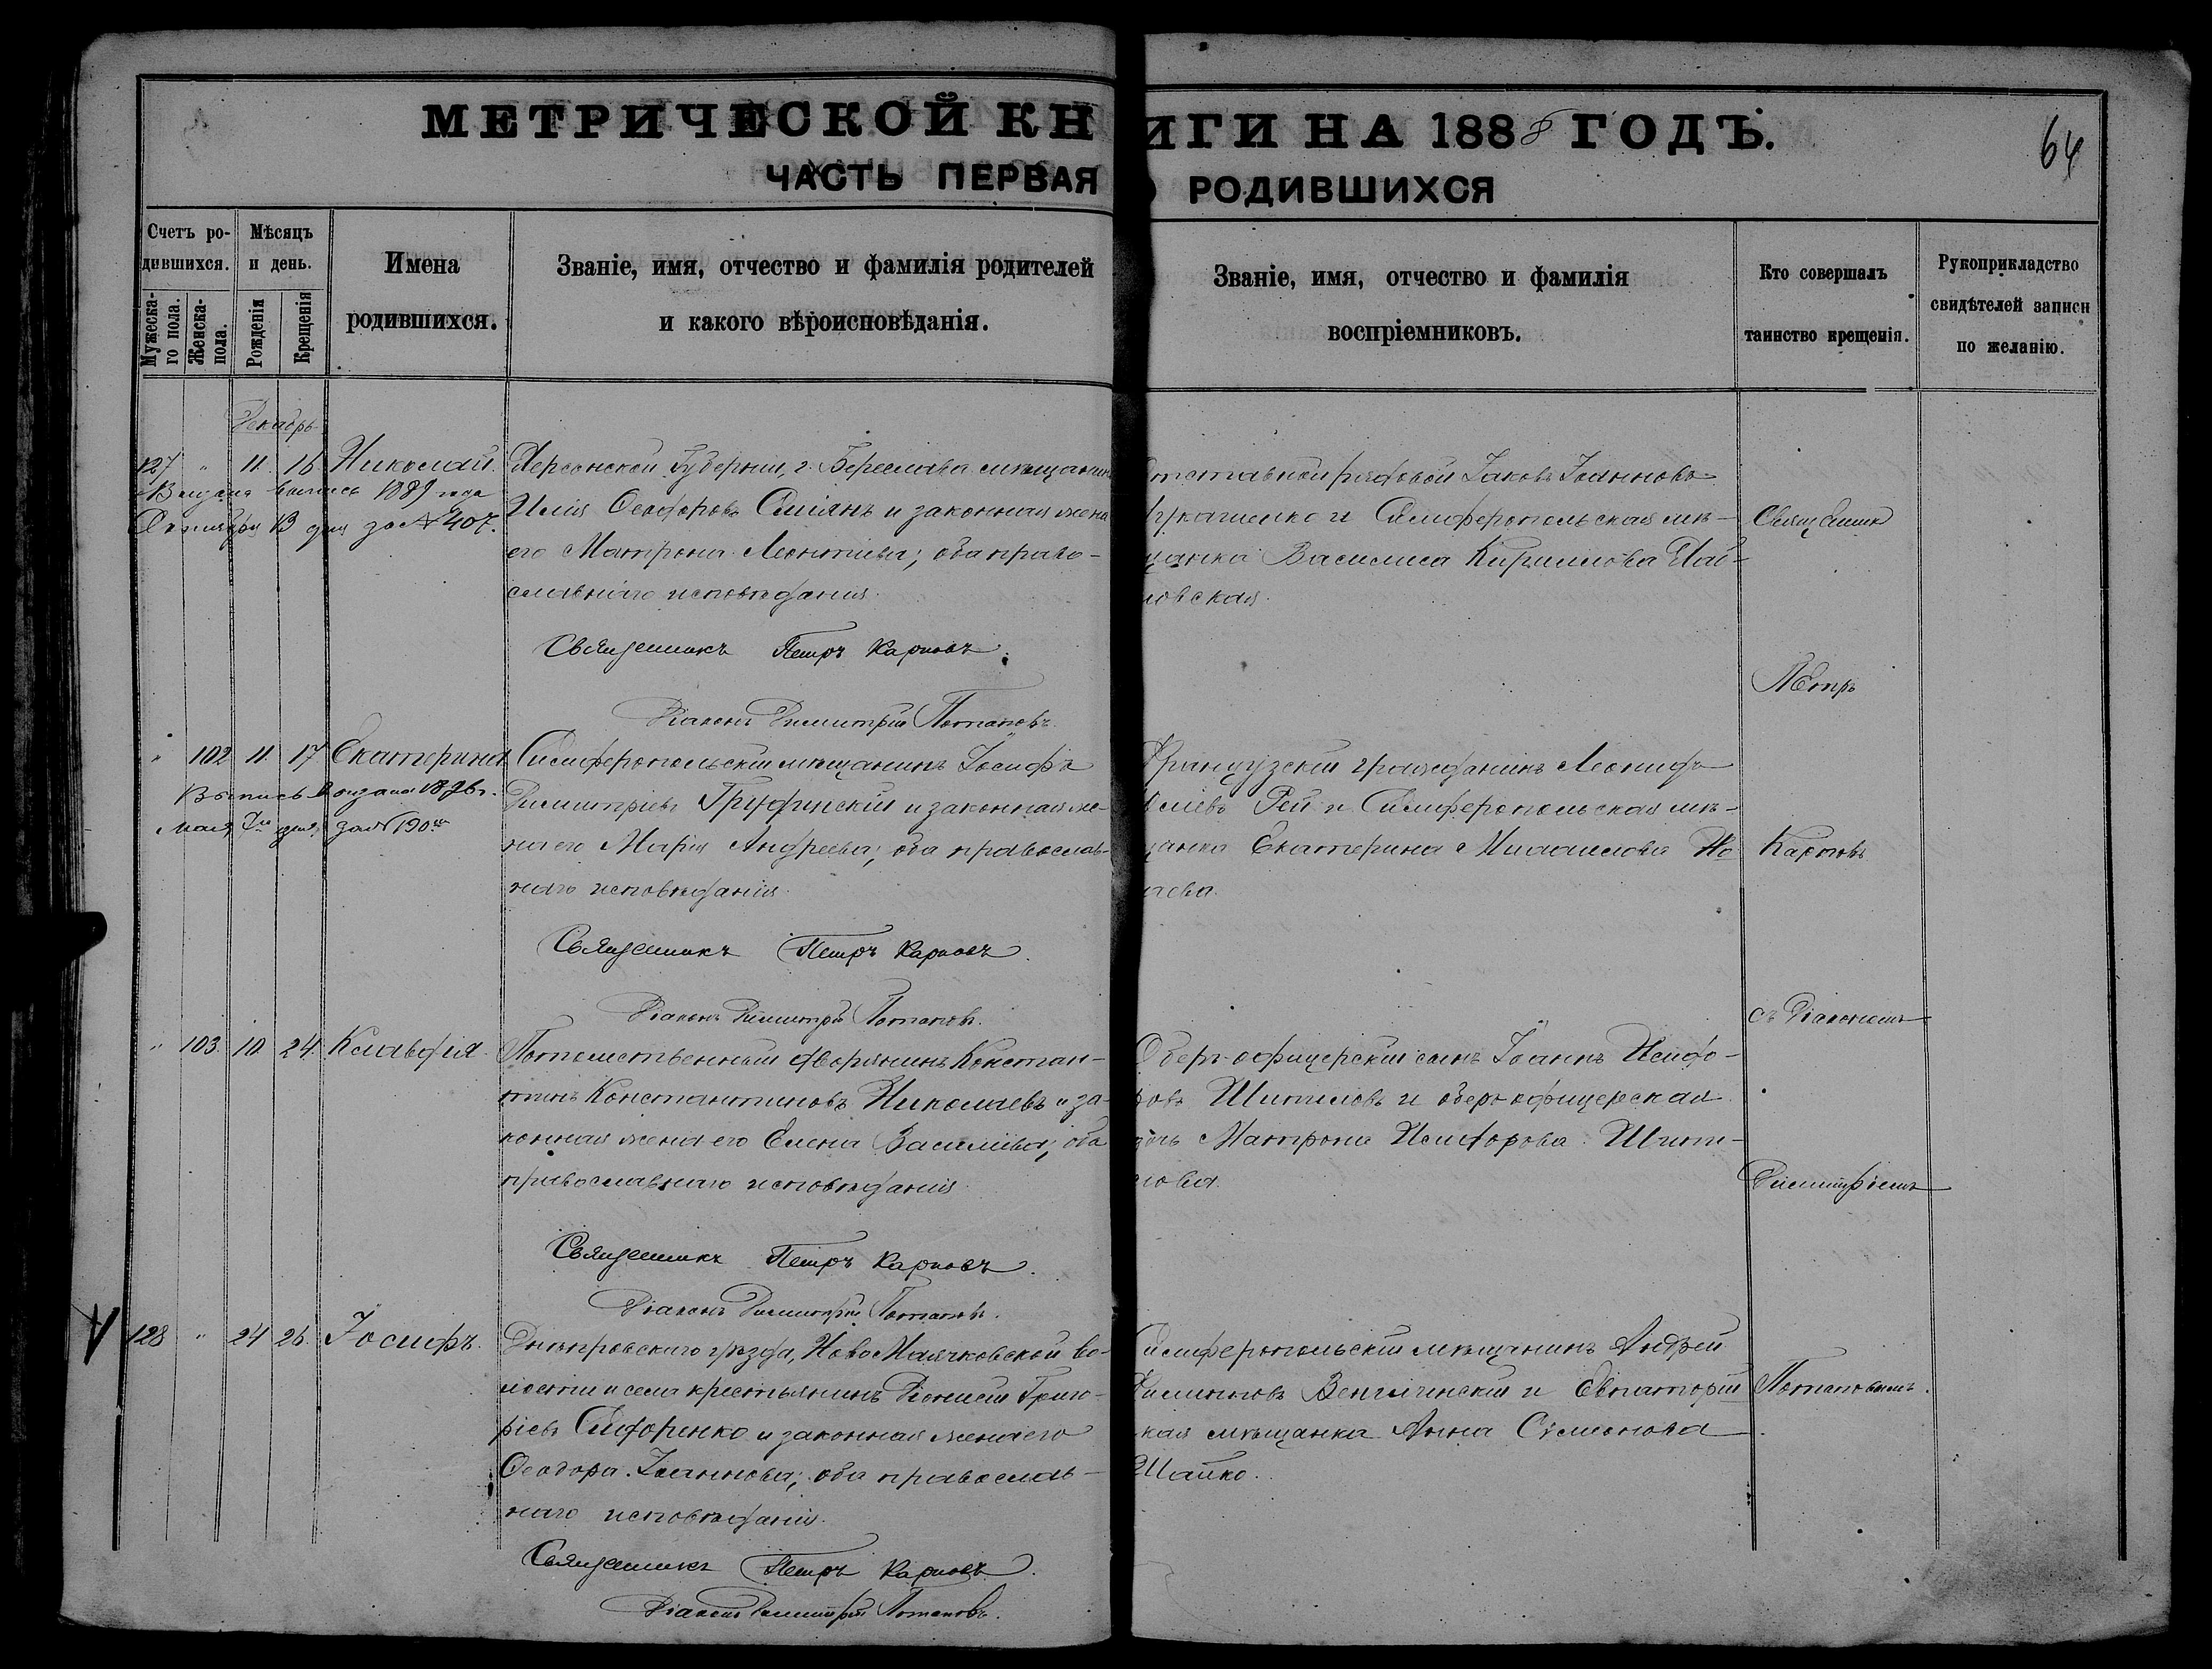 МЕТРИЧЕСКОЙ КНИГИ НА 1888 ГОДЪ.
64
ЧАСТЬ ПЕРВАЯ О РОДИВШИХСЯ
Счетъ родившихся.
Мужеска-
го пола.
Женска-
пола.
Мѣсяцъ
и день.
Рожденія
Крещенія
Имена
родившихся.
Званіе, имя, отчество и фамилія родителей
и какого вѣроисповѣданія.
Званіе, имя, отчество и фамилія
воспріемниковъ.
Кто совершалъ
таинство крещенія.
Рукоприкладство
свидѣтелей записи
по желанію.
Декабрь
127 " 11. 16. Николай.
Выдана выпись 1889 года
Октября 13 дня за № 407.
Херсонской Губерніи, г. Береслава мѣщанинъ
Илія Ѳеодоровъ и законная жена
его Матрона Леонтіева; оба право-
славнаго исповѣданія.
Священникъ Петръ Карповъ.
Діаконъ Димитрій Потаповъ.
Отставной рядовой Іаковъ Іоанновъ
и Симферопольская мѣ-
щанка Василиса Кириллова Пав-
ловская.
" 102 11. 17 Екатерина
Выпись выдана 1896 г.
Мая 7го дня за № 190
Симферопольскій мѣщанинъ Іосифъ
Димитріевъ Грудинскій и законная же-
на его Марія Андреева; оба православ-
наго исповѣданія.
Священникъ Петръ Карповъ.
Діаконъ Димитрій Потаповъ.
Французскій гражданинъ Леонидъ
Рей и Симферопольская мѣ-
щанка Екатерина Михайлова
" 103. 10. 24. Клавдія.
Потомственный дворянинъ Констан-
тинъ Константиновъ Николаевъ и за-
конная жена его Елена Василіева; оба
православнаго исповѣданія.
Священникъ Петръ Карповъ.
Діаконъ Димитрій Потаповъ.
Оберъ-офицерскій сынъ Іоаннъ Исидо-
ровъ Шитиловъ и оберъ офицерская
дочь Матрона Исидорова Шити-
лова.
128 " 24 26. Іосифъ.
Днѣпровскаго уѣзда, Ново Маячковской во-
лости и села крестьянинъ Діонисій Григо-
ріевъ Сидоренко и законная жена его
Ѳеодора Іоаннова; оба православ-
наго исповѣданія.
Священникъ Петръ Карповъ.
Діаконъ Димитрій Потаповъ.
Симферопольскій мѣщанинъ Андрей
Венглинскій и Евпаторій
ская мѣщанка Анна Симеонова
Шайко.
Священникъ
Петръ
Карповъ
съ Діакономъ
Димитріемъ
Потаповымъ.